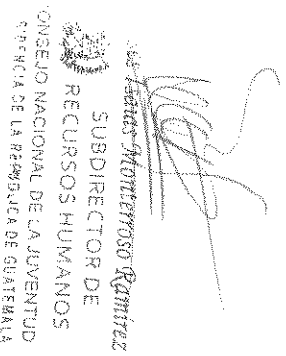 Monterroso Ramírez
SUBDIRECTOR DE
RECURSOS HUMANOS
CONSEJO NACIONAL DE LA JUVENTUD
DE LA REPÚBLICA DE GUATEMALA